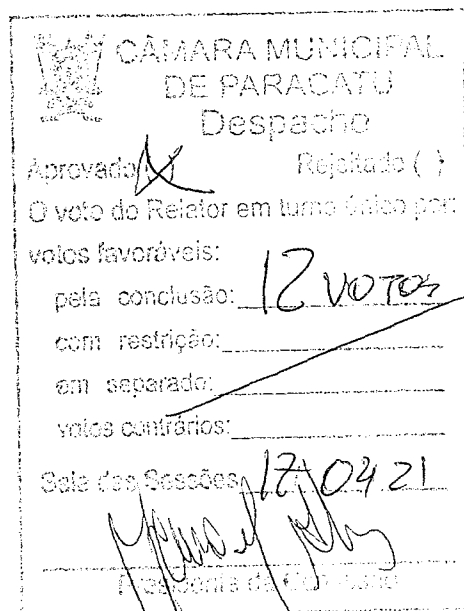 CÂMARA MUNICIPAL
DE PARACATU
Despacho
Aprovado (X) Rejeitado ( )
O voto do Relator em turno único por:
votos favoráveis:
pela conclusão: 12 VOTOS
com restrição:
em separado:
votos contrários:
Sala das Sessões 17 04 21
Presidente da Comissão